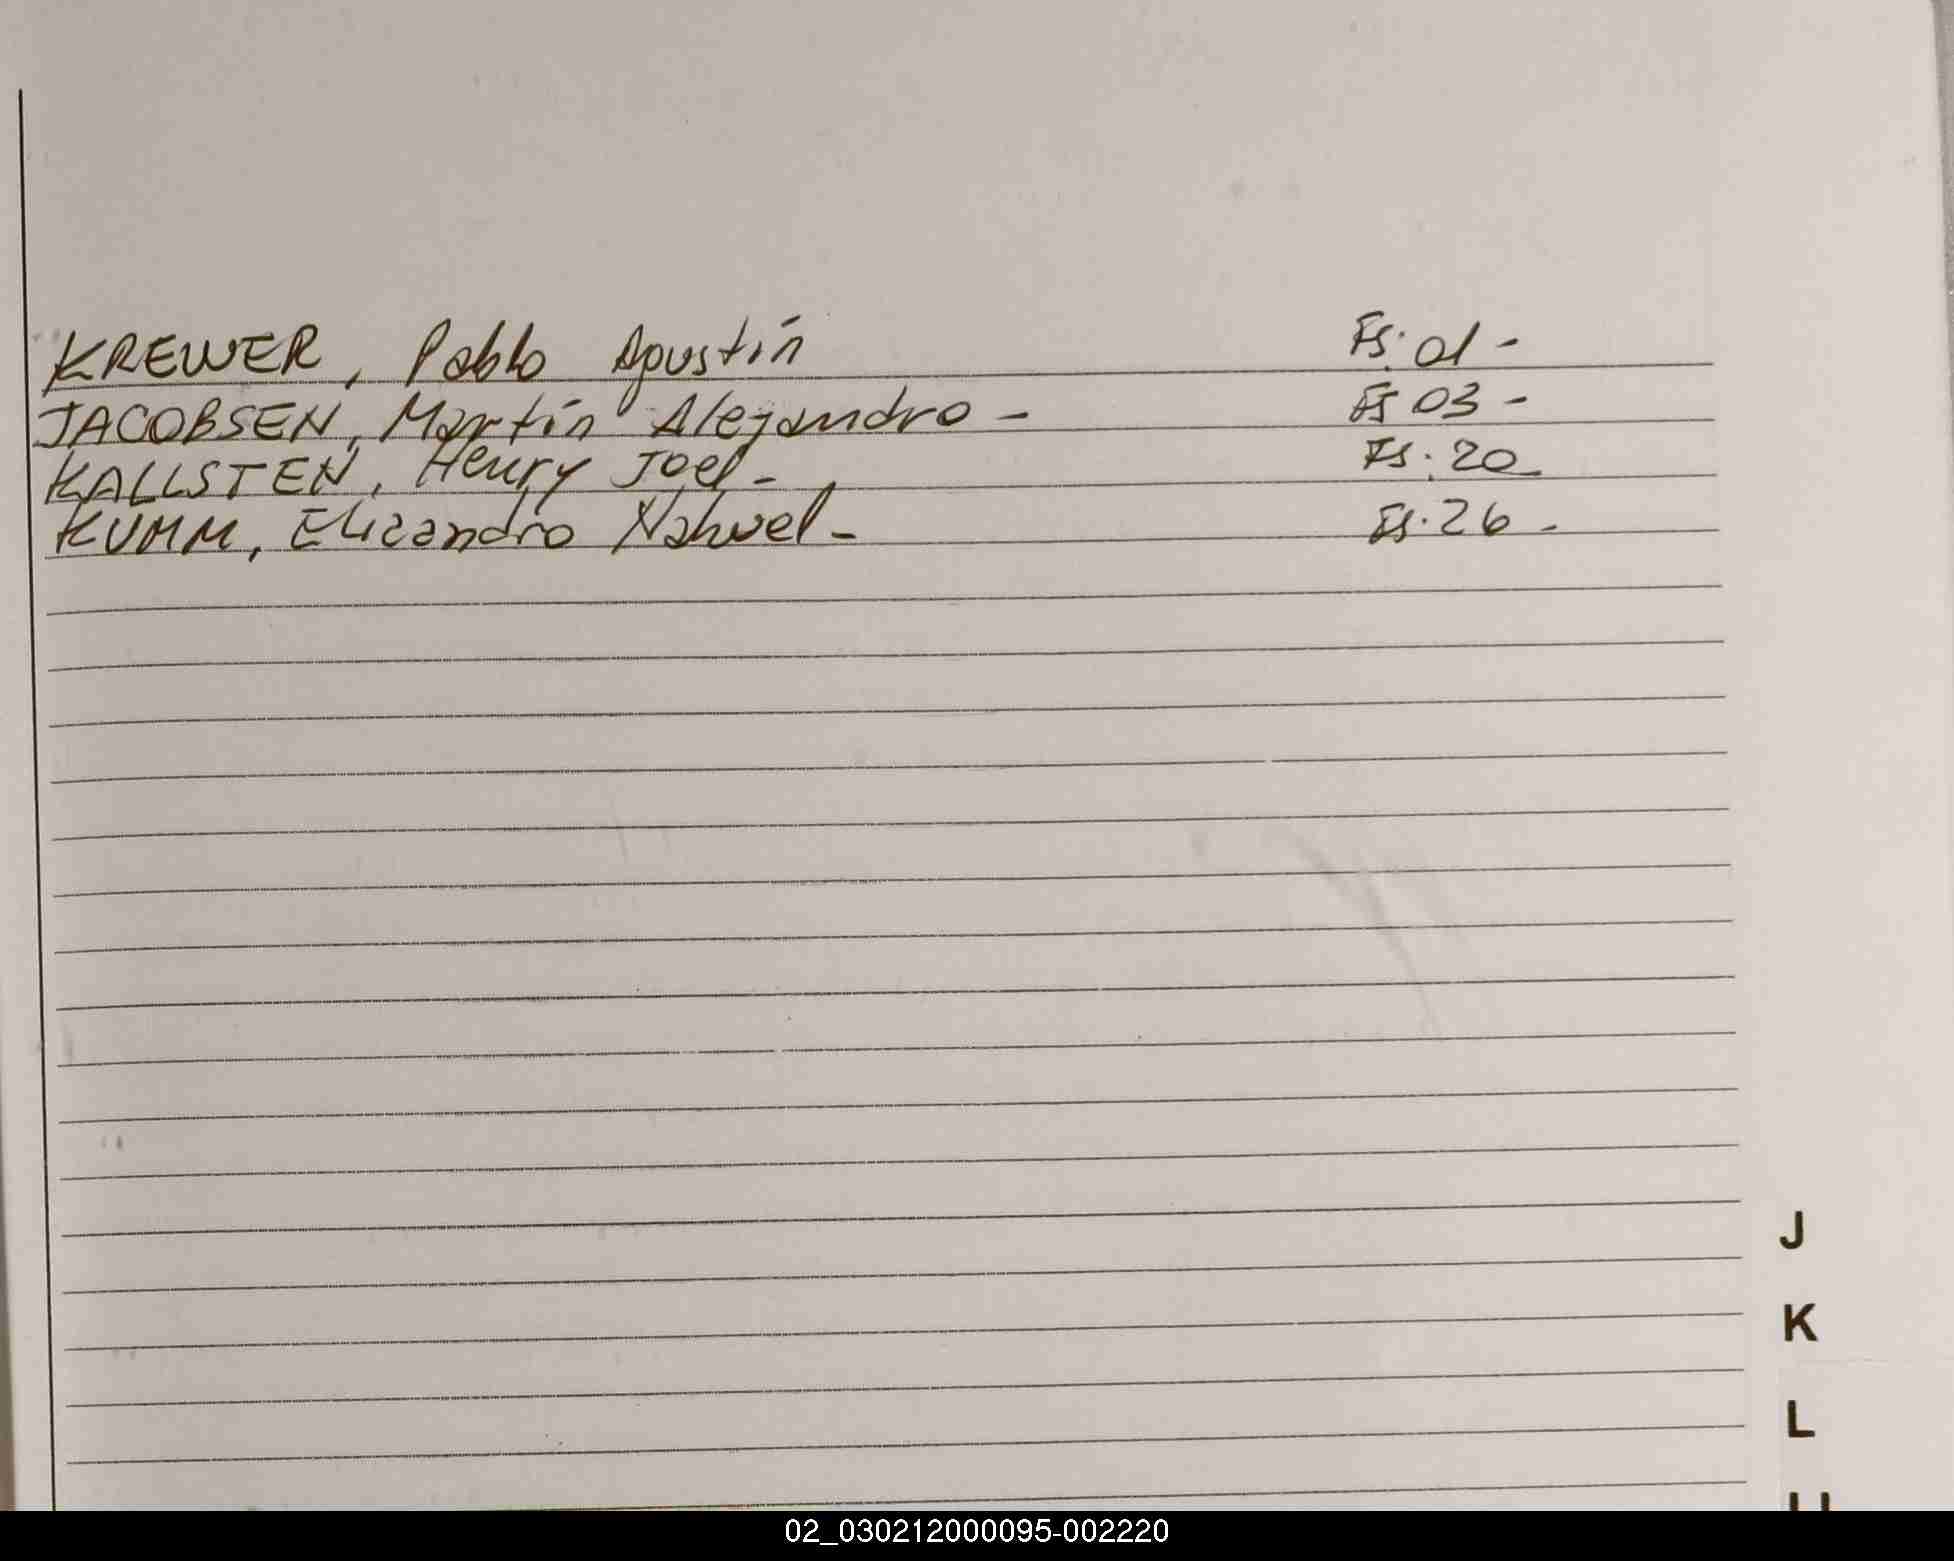 KREWER, Pablo Agustín Fs. 01 -
JACOBSEN, Martín Alejandro - Fs 03 -
KALLSTEN, Henry Joel - Fs. 20 -
KUMM, Elizandro Nahuel - Fs. 26 -
J
K
L
02_030212000095-002220